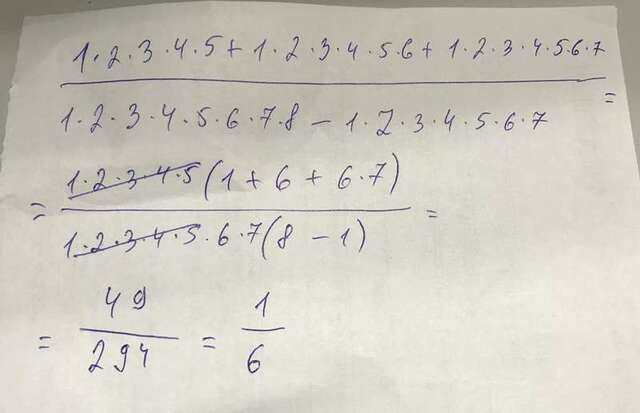 1·2·3·4·5+1·2·3·4·5·6+1·2·3·4·5·6·7
=
1·2·3·4·5·6·7·8-1·2·3·4·5·6·7
1·2·3·4·5(1+6+6·7)
= =
1·2·3·4·5·6·7(8-1)
49 1
= =
294 6